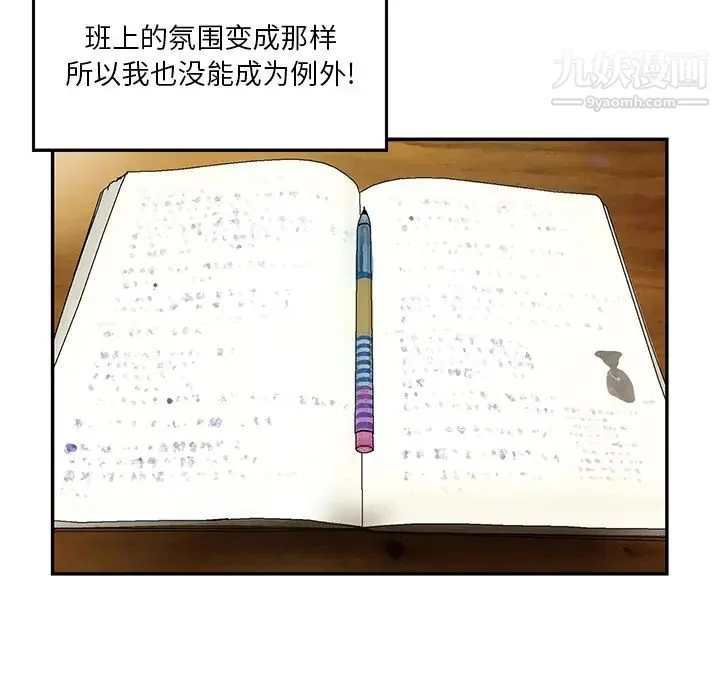 班上的氛围变成那样
所以我也没能成为例外!
九妖漫画
9yaomh.com